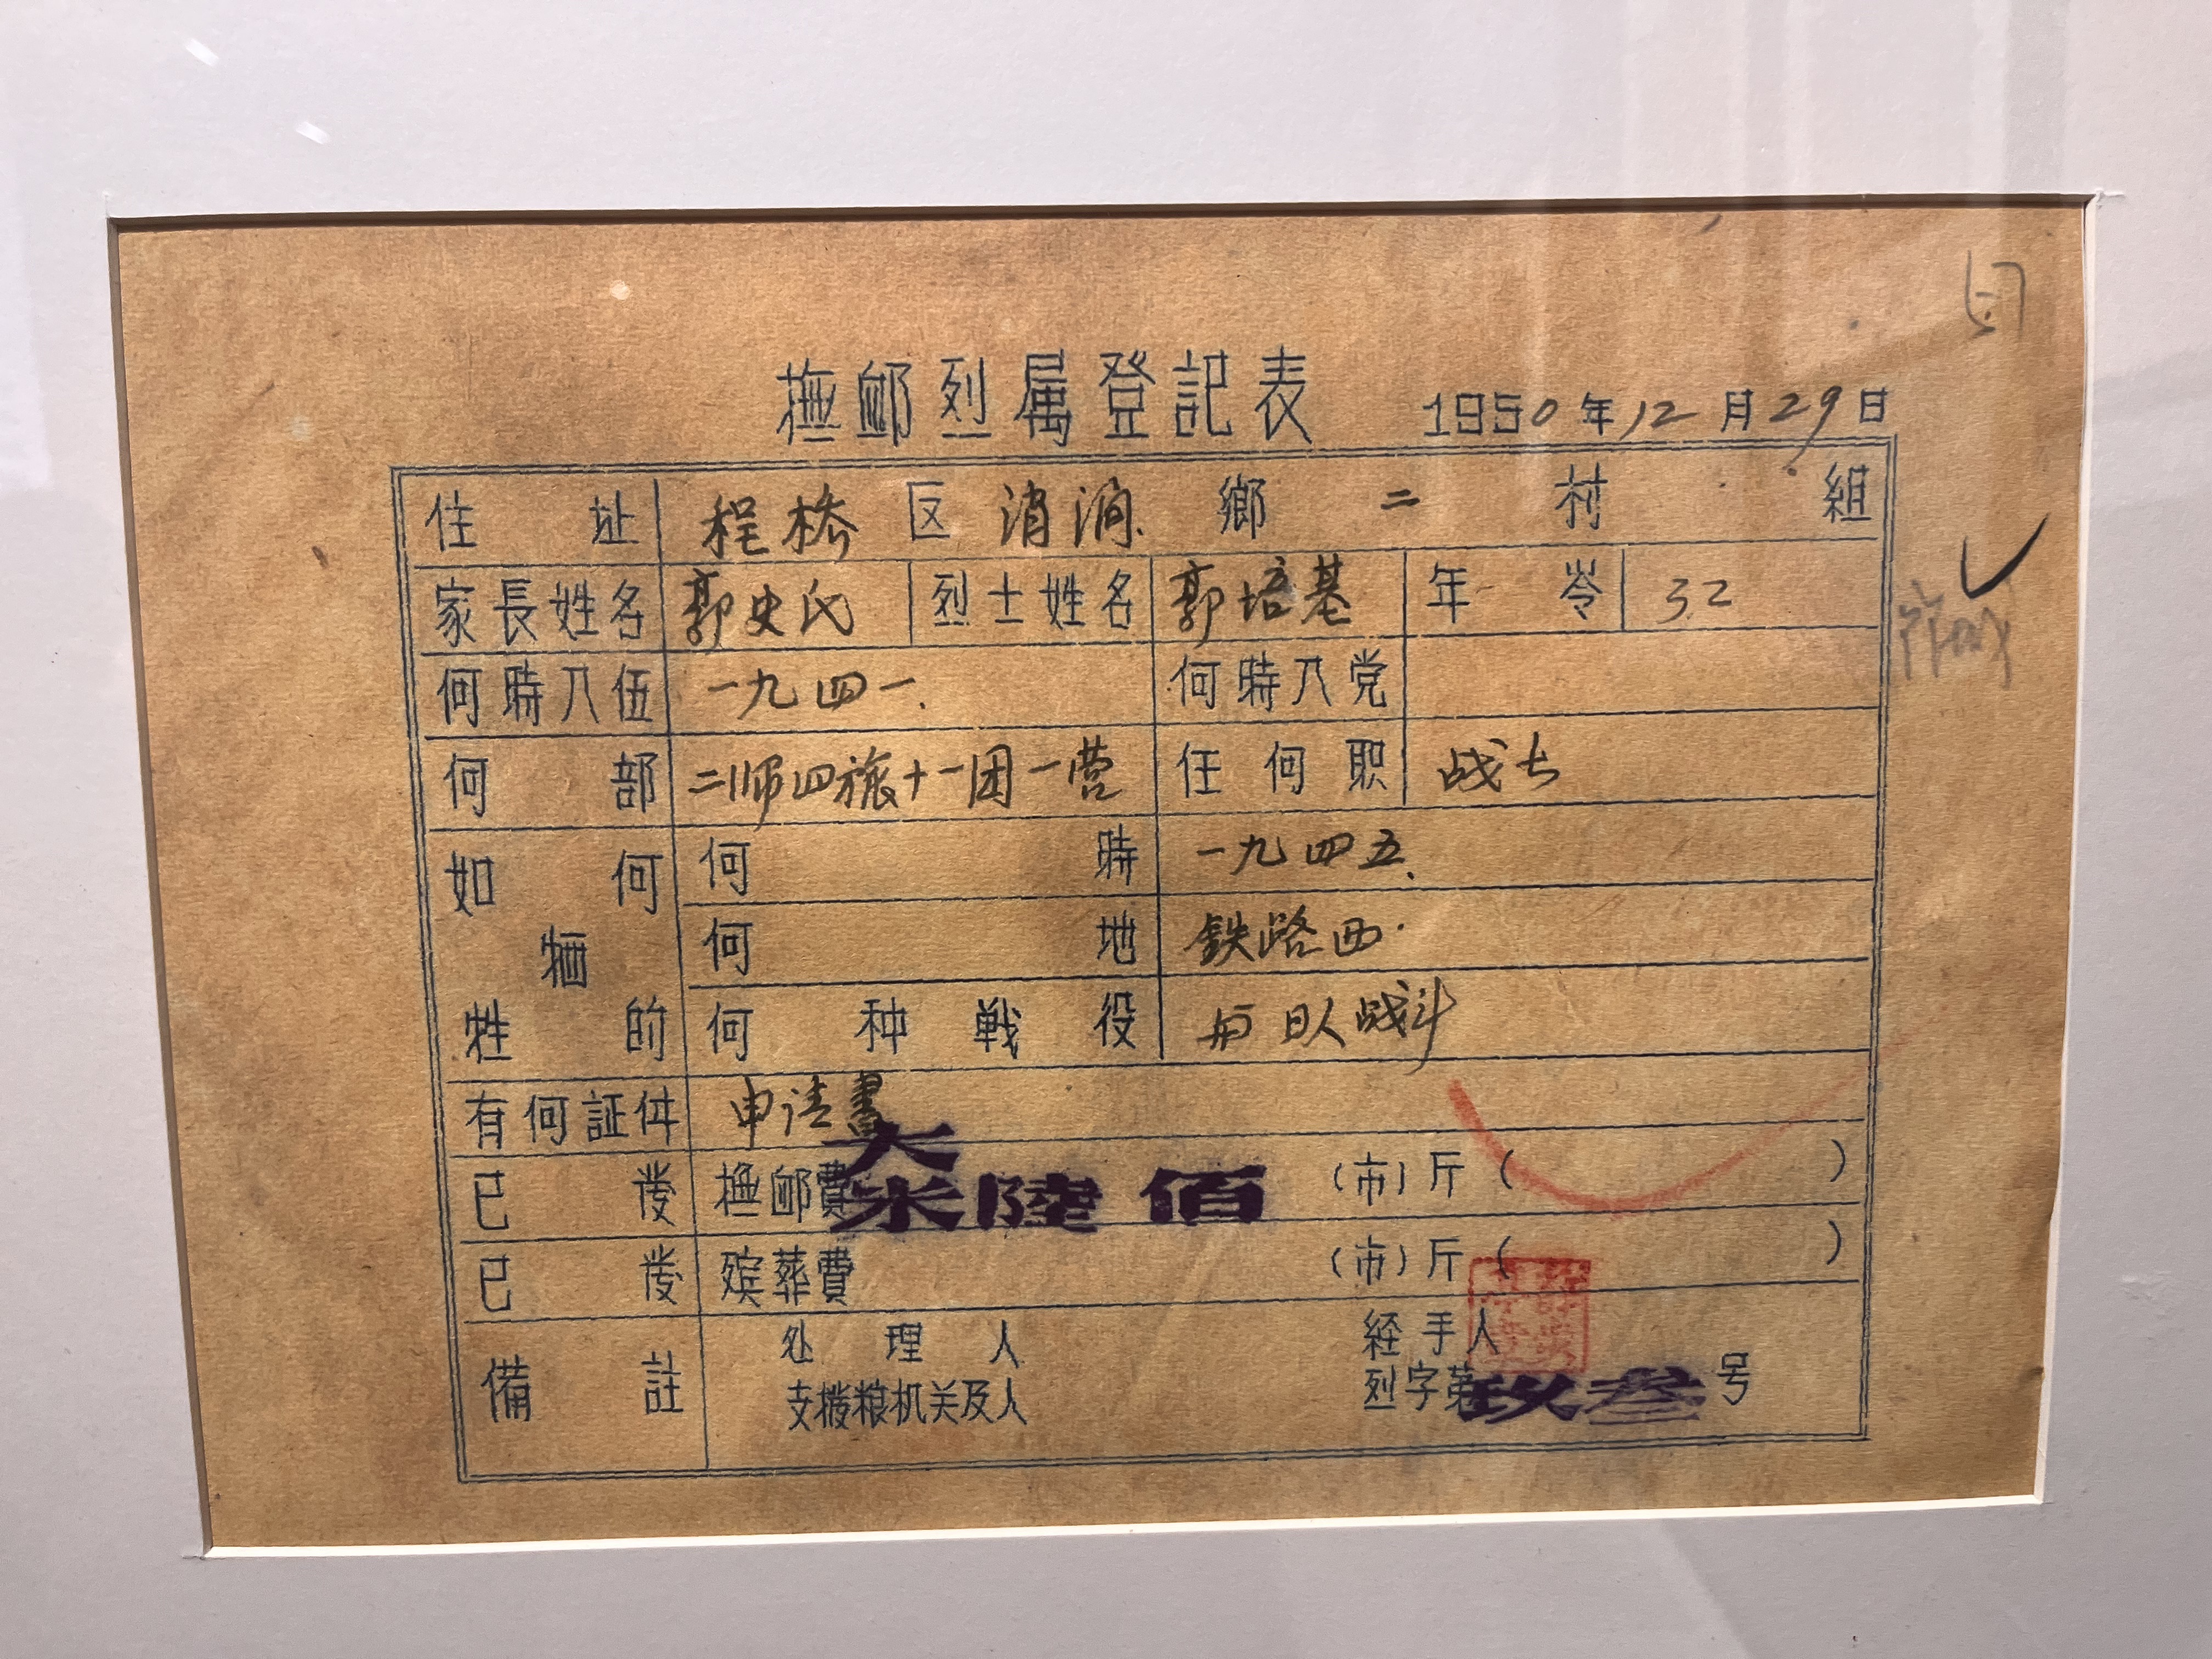 撫卹烈属登記表 1950年12月29日
住址 程桥区消涧鄉二村 組
家長姓名 郭史氏 烈士姓名 郭培基 年岺 32
何時入伍 一九四一. 何時入党
何部 二师四旅十一团一营 任何职 战士
如何牺牲的 何時 一九四五.
何地 鉄路西.
何种戦役 与日人战斗
有何証件 申请書
已發 撫卹費 大米陸佰 (市)斤( )
已發 殡葬費 (市)斤( )
備註 处理人 経手人
支撥粮机关及人 烈字第玖叁号